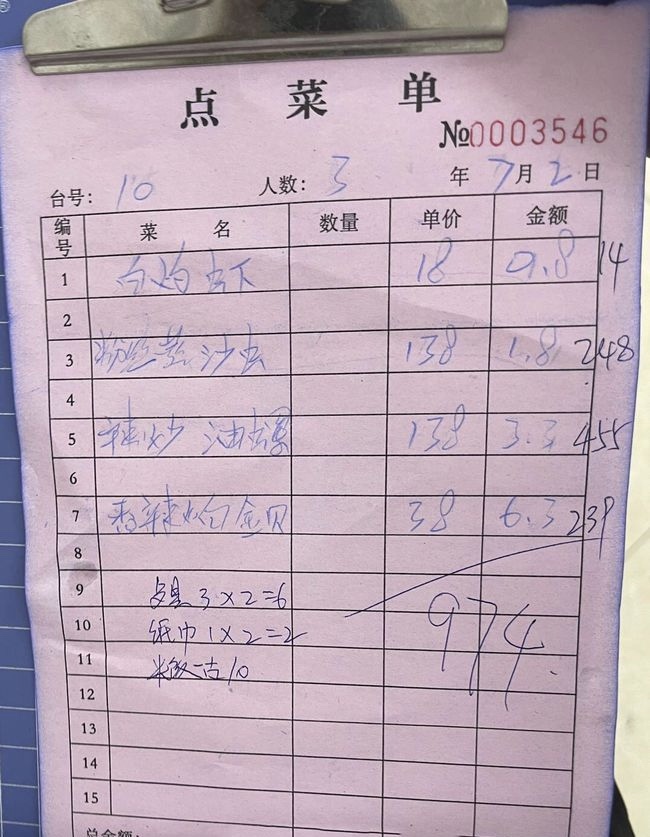 点菜单
№0003546
台号: 10 人数: 3 年 7月2日
编号 菜名 数量 单价 金额
1 白灼虾 18 0.8 14
2
3 粉丝蒸沙虫 138 1.8 248
4
5 辣炒油螺 138 3.3 455
6
7 香辣炒白金贝 38 6.3 239
8
9 3×2=6
10 纸巾1×2=2
974
11 10
12
13
14
15
总金额: